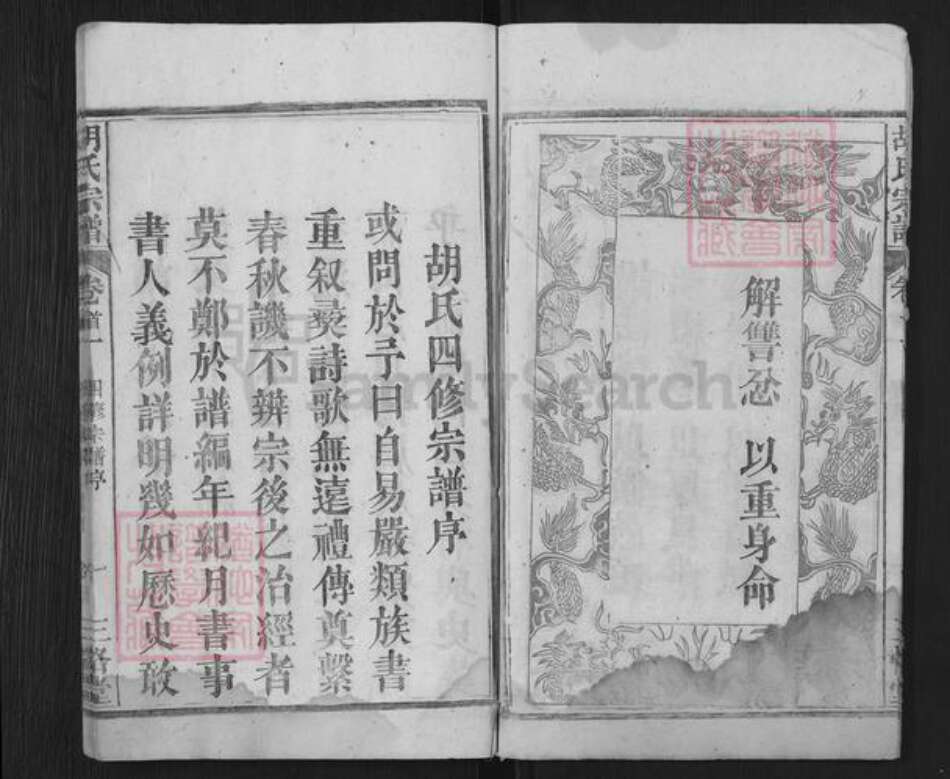 解讐忿 以重身命
胡氏宗譜
胡氏四修宗譜序
或問於予曰自易嚴類族書
重叙彝詩歌無遠禮傳奠繫
春秋譏不辨宗後之治經者
莫不鄭於譜編年紀月書事
書人義例詳明幾如歷史敢
胡氏宗譜 卷首 四修宗譜序 一
FamilySearch